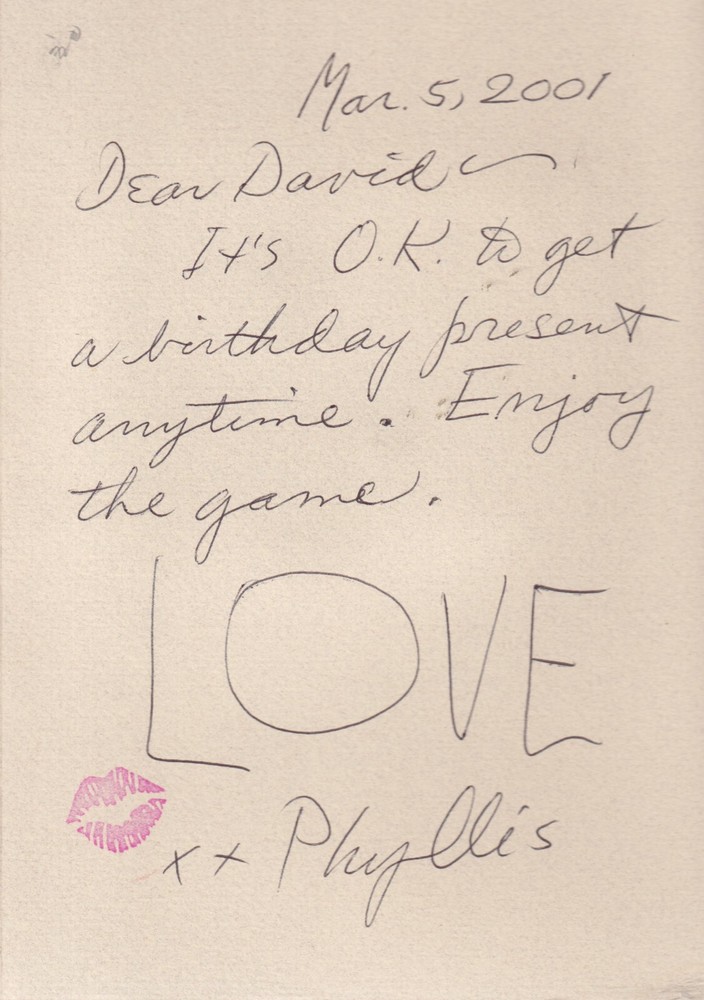 Mar. 5, 2001
Dear David
It's O.K. to get
a birthday present
anytime. Enjoy
the game.
LOVE
xx Phyllis